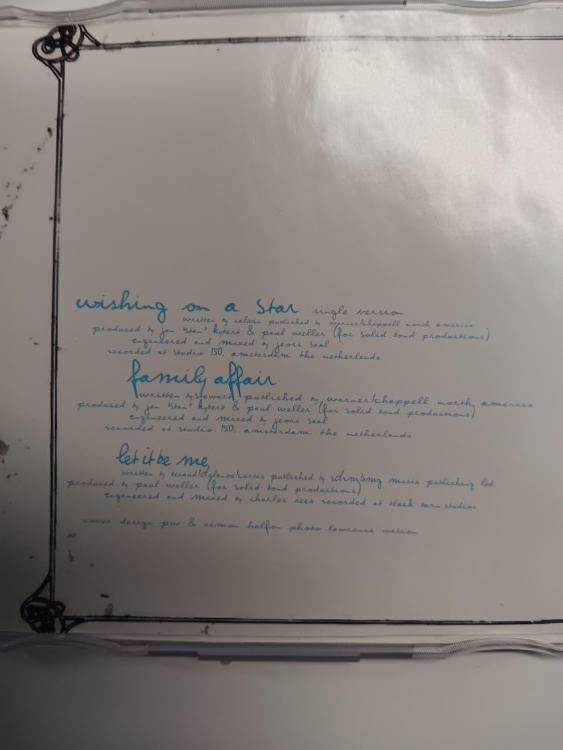 wishing on a star single version
written by calvin published by warner/chappell north america
produced by jan "stan" kybert & paul weller (for solid bond productions)
engineered and mixed by joeri saal
recorded at studio 150, amsterdam the netherlands
family affair
written by stewart published by warner/chappell north america
produced by jan "stan" kybert & paul weller (for solid bond productions)
engineered and mixed by joeri saal
recorded at studio 150, amsterdam the netherlands
let it be me
written by becaud/delanoe/curtis published by sdrm/bmg music publishing ltd
produced by paul weller (for solid bond productions)
engineered and mixed by charles rees recorded at black barn studios
cover design pw & simon halfon photo lawrence watson